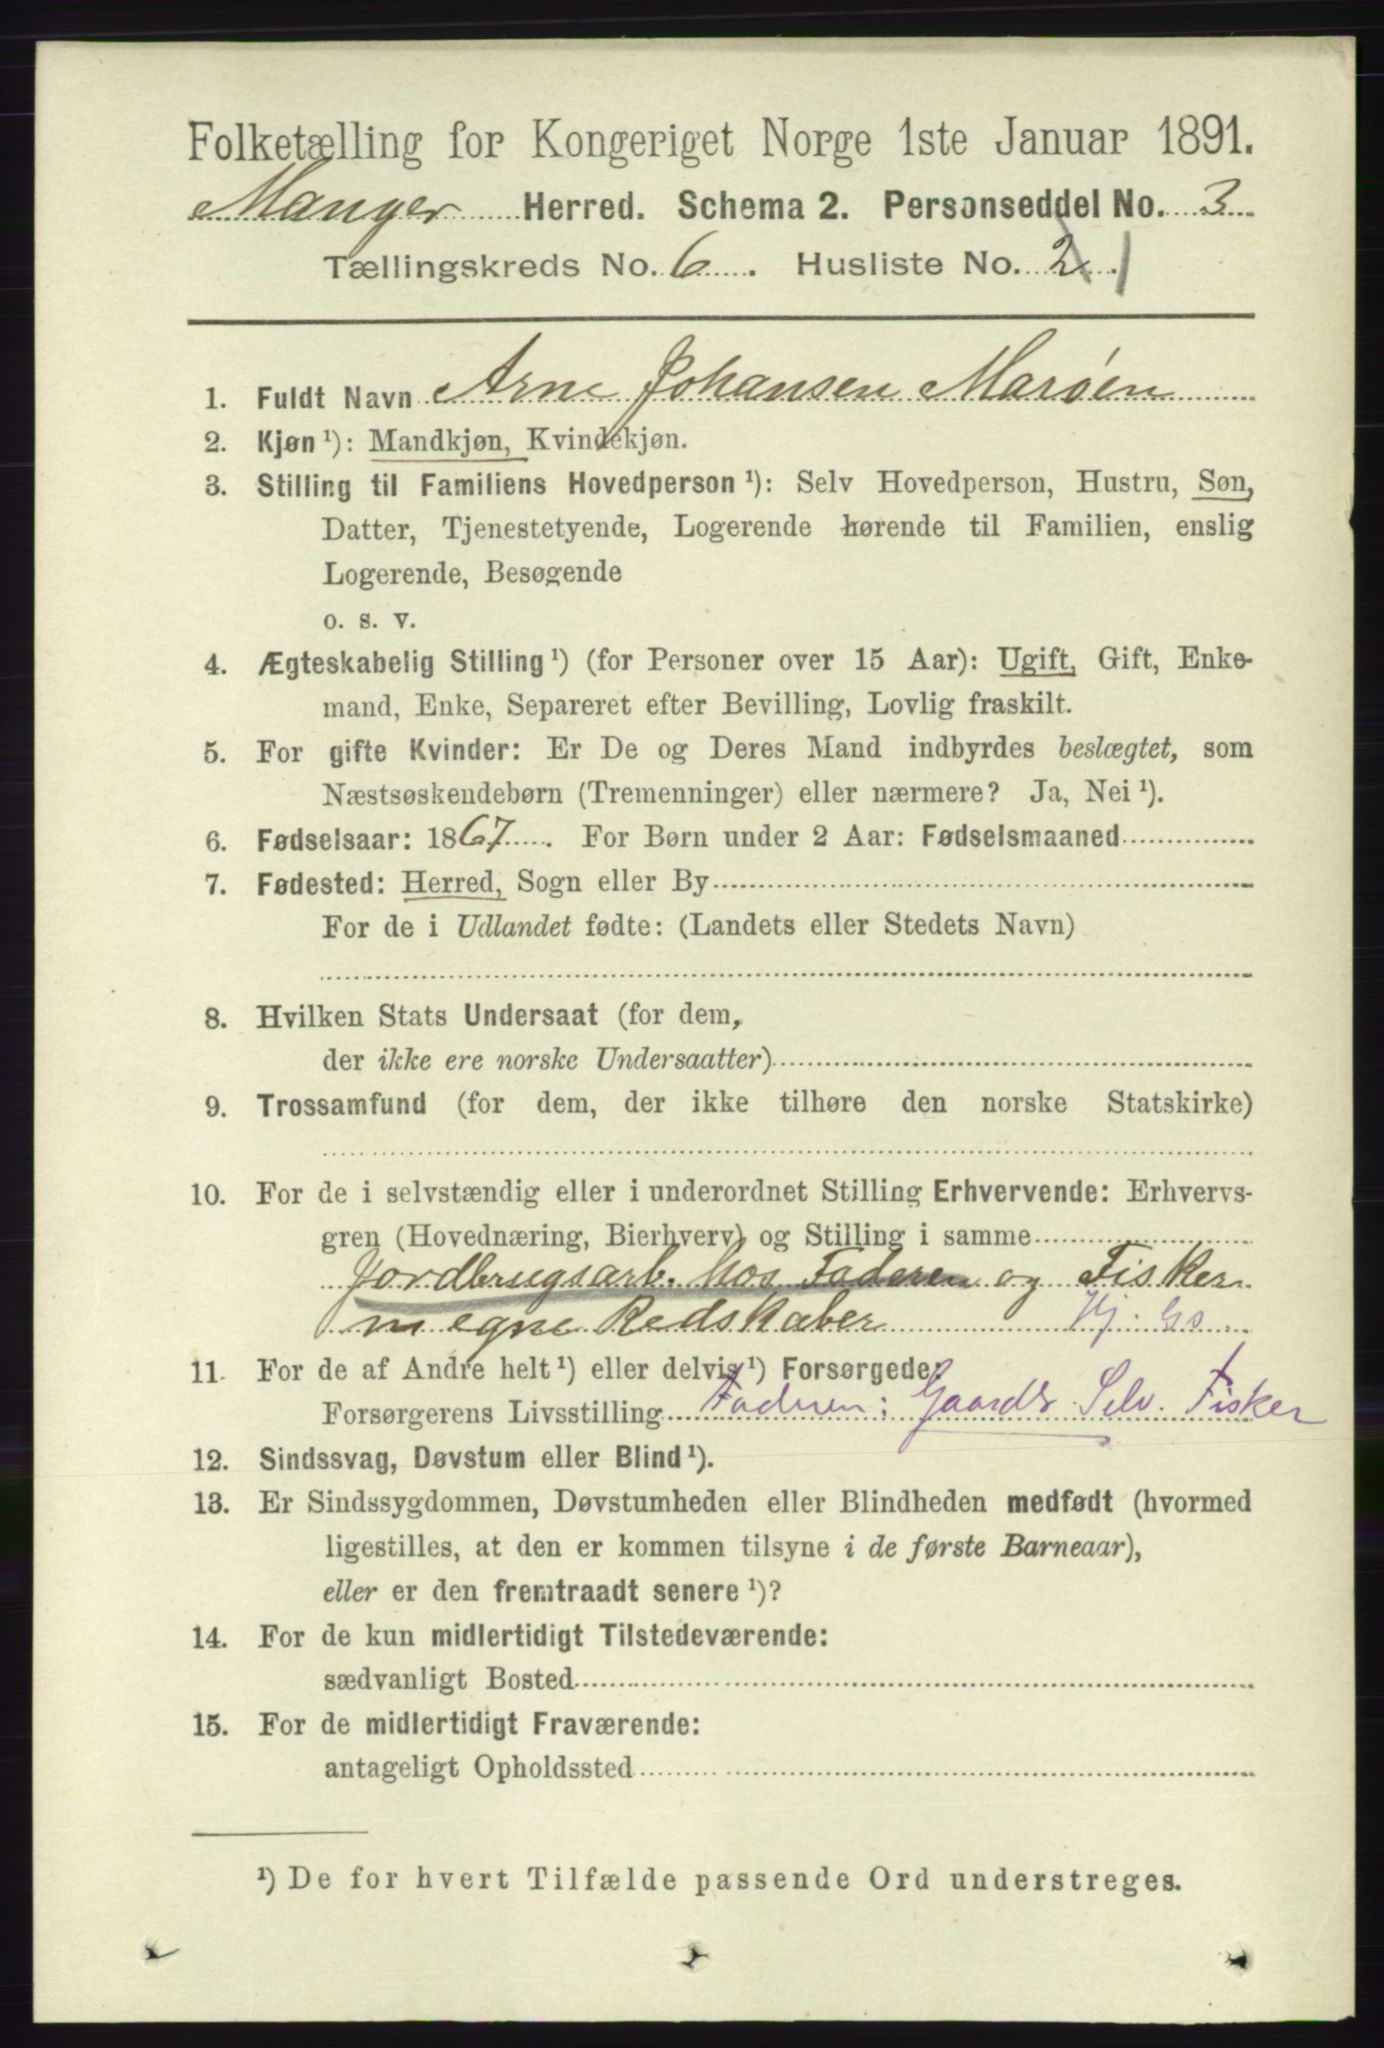 Folketælling for Kongeriget Norge 1ste Januar 1891.
Manger Herred. Schema 2. Personseddel No. 3
Tællingskreds No. 6. Husliste No. 2 1
1. Fuldt Navn Arne Johansen Marøen
2. Kjøn ¹): Mandkjøn, Kvindekjøn.
3. Stilling til Familiens Hovedperson ¹): Selv Hovedperson, Hustru, Søn,
Datter, Tjenestetyende, Logerende hørende til Familien, enslig
Logerende, Besøgende
o. s. v.
4. Ægteskabelig Stilling ¹) (for Personer over 15 Aar): Ugift, Gift, Enke-
mand, Enke, Separeret efter Bevilling, Lovlig fraskilt.
5. For gifte Kvinder: Er De og Deres Mand indbyrdes beslægtet, som
Næstsøskendebørn (Tremenninger) eller nærmere? Ja, Nei ¹).
6. Fødselsaar: 1867. For Børn under 2 Aar: Fødselsmaaned
7. Fødested: Herred, Sogn eller By
For de i Udlandet fødte: (Landets eller Stedets Navn)
8. Hvilken Stats Undersaat (for dem,
der ikke ere norske Undersaatter)
9. Trossamfund (for dem, der ikke tilhøre den norske Statskirke)
10. For de i selvstændig eller i underordnet Stilling Erhvervende: Erhvervs-
gren (Hovednæring, Bierhverv) og Stilling i samme
Jordbrugsarb. hos Faderen og Fisker
m egne Redskaber Hj. Gs
11. For de af Andre helt ¹) eller delvis ¹) Forsørgede:
Forsørgerens Livsstilling Faderen: Gaardb Selv. Fisker
12. Sindssvag, Døvstum eller Blind ¹).
13. Er Sindssygdommen, Døvstumheden eller Blindheden medfødt (hvormed
ligestilles, at den er kommen tilsyne i de første Barneaar),
eller er den fremtraadt senere ¹)?
14. For de kun midlertidigt Tilstedeværende:
sædvanligt Bosted
15. For de midlertidigt Fraværende:
antageligt Opholdssted
¹) De for hvert Tilfælde passende Ord understreges.